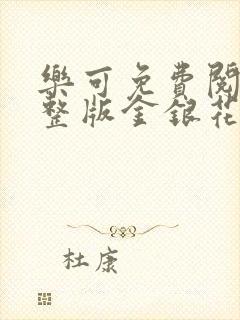 樂可免費閱
整版金銀花
杜康